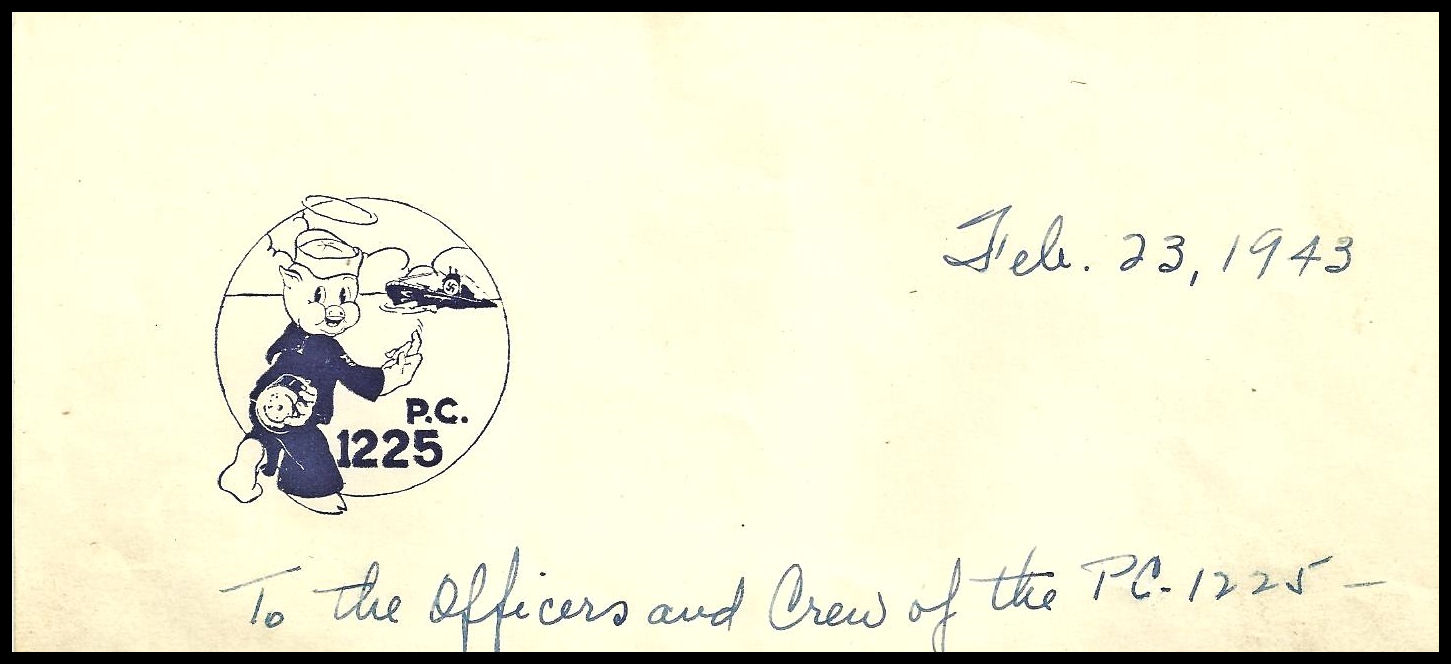 Feb. 23, 1943
P.C.
1225
To the Officers and Crew of the PC-1225 —